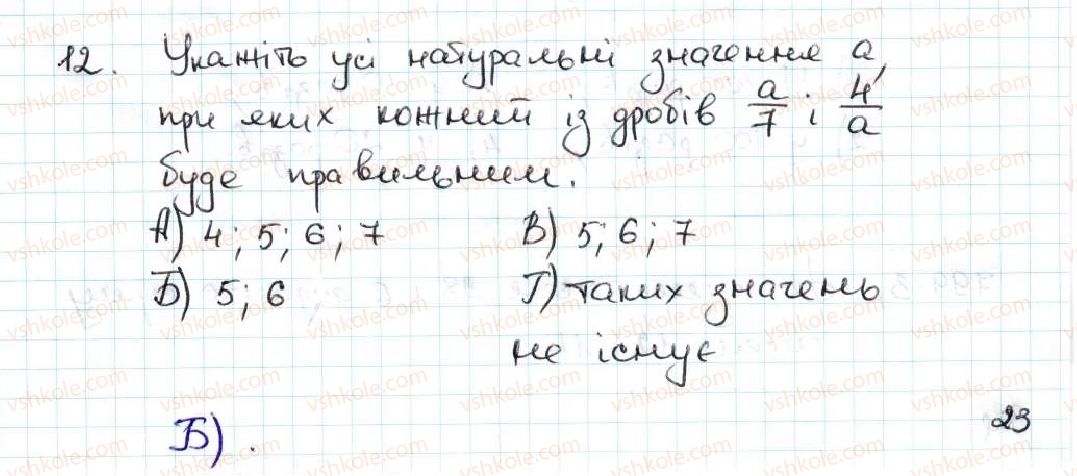 12. Укажіть усі натуральні значення a,
при яких кожний із дробів a/7 і 4/a
буде правильним.
А) 4; 5; 6; 7 В) 5; 6; 7
Б) 5; 6 Г) таких значень
не існує
Б).
23